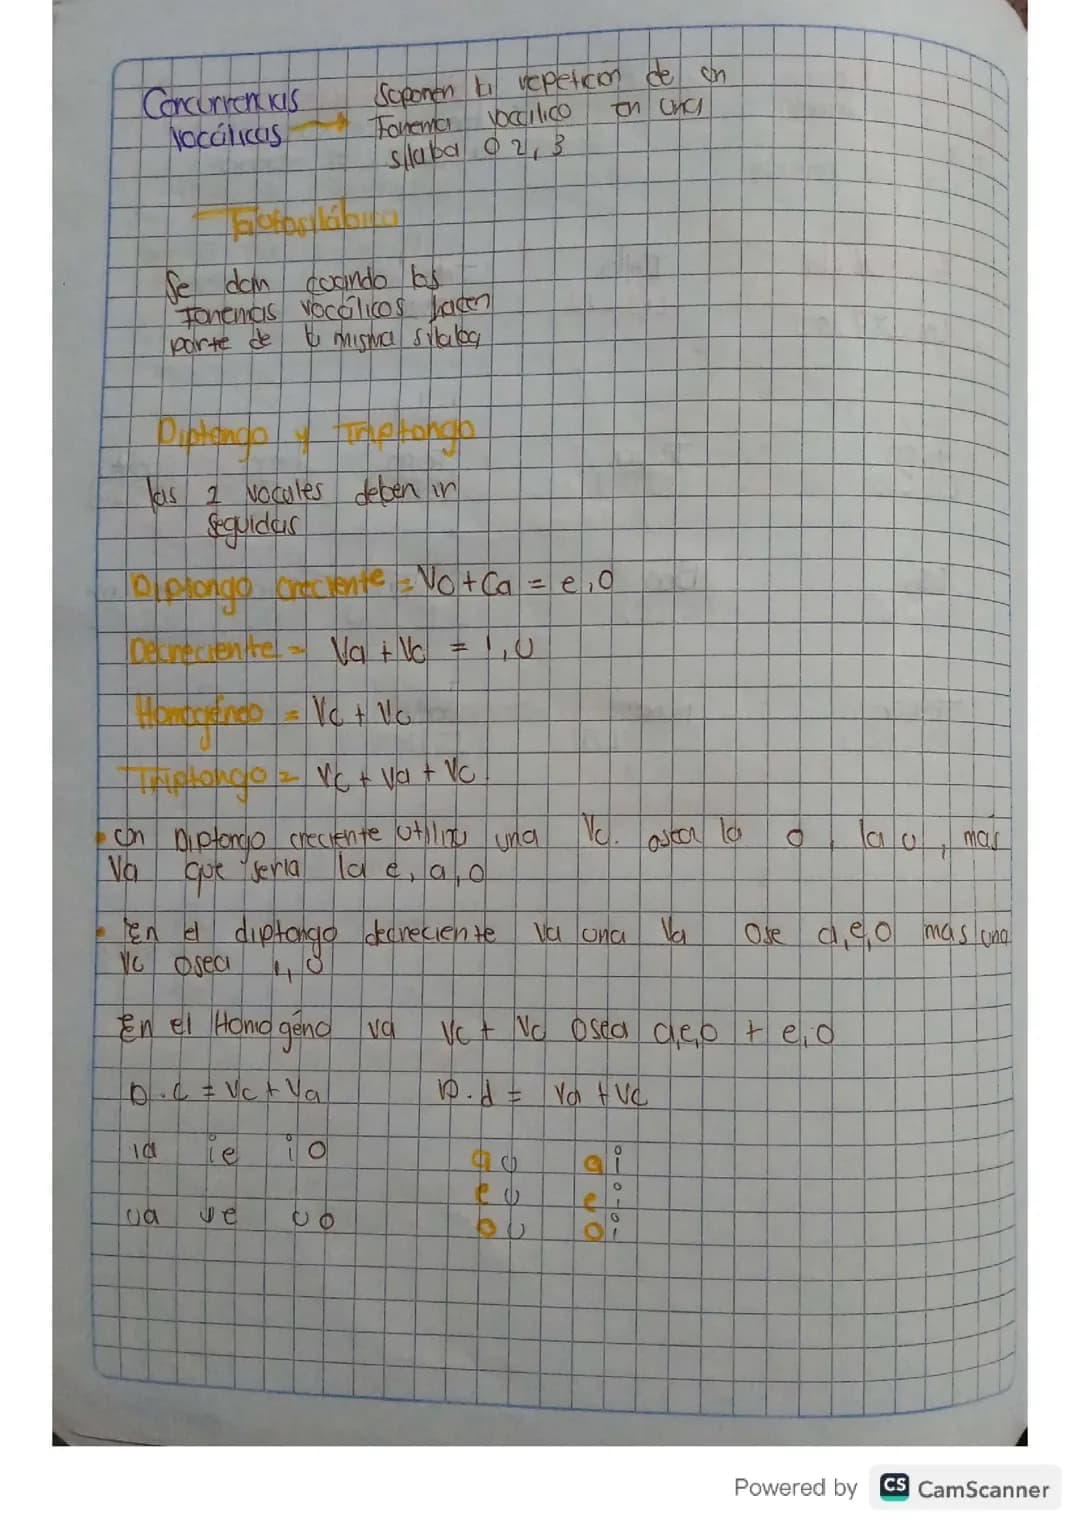 Concurrencias Soponen la repeticon de un
vocálicas → Fonema vocálico en una
sílaba o 2, 3
Tautosilábica
Se dan cuando los
Fonemas vocálicos hacen
parte de la misma sílaba
Diptongo y Triptongo
las 2 vocales deben ir
seguidas
Diptongo creciente = Vc + Ca = e, o
Decreciente = Va + Vc = i, u
Homogéneo = Vc + Vc
Triptongo = Vc + Va + Vc
• un Diptongo creciente utilizo una Vc. osea la o, la u, mas
Va que seria la e, a, o
• En el diptongo decreciente va una Va ose a, e, o mas una
Vc osea i, u
En el Homogéno va Vc + Vc osea a,e,o + e, o
D.C = Vc + Va D.d = Va + Vc
ia ie io au ai
eu ei
ua ue uo ou oi
Powered by CS CamScanner